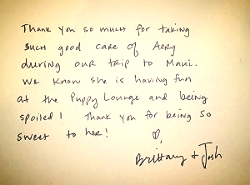 Thank you so much for taking
such good care of
during our trip to Maui.
We know she is having fun
at the Puppy Lounge and being
spoiled! Thank you for being so
sweet to her!
Brittany & Josh